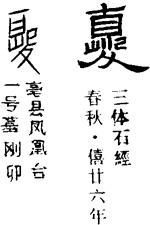 夔
三体石經
春秋·僖廿六年
夔
亳县凤凰台
一号墓刚卯